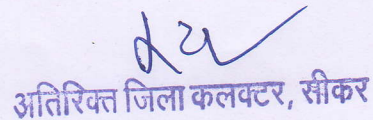 अतिरिक्त जिला कलक्टर, सीकर